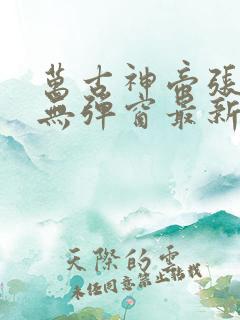 萬古神帝張
無彈窗最新
天際的雲
未经同意禁止转载